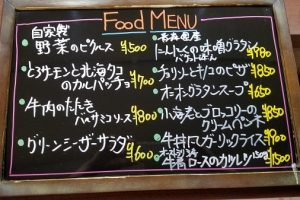 Food MENU
自家製
野菜のピクルス ¥500
とろサーモンと北海タコ
のカルパッチョ ¥700
牛肉のたたき
バルサミコソース ¥800
グリーンシーザーサラダ ¥600
青森県産
にんにくの味噌グラタン
バケット ¥780
チョリソとキノコのピザ ¥850
オニオングラタンスープ ¥650
小海老とブロッコリーの
クリームペンネ ¥850
ガーリックライス ¥900
ロースのカツレツ 150g ¥1500